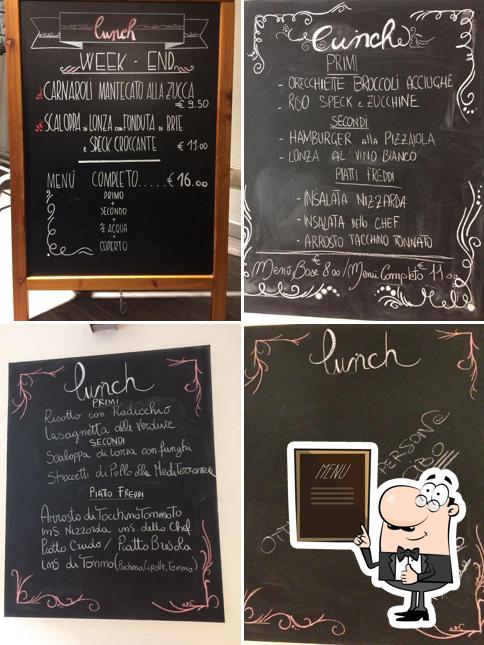 lunch
WEEK - END
CARNAROLI MANTECATO ALLA ZUCCA
€ 9.50
SCALOPPA DI LONZA CON FONDUTA DI BRIE
E SPECK CROCCANTE € 11.00
MENÙ COMPLETO..... € 16.00
PRIMO
+
SECONDO
+
½ ACQUA
+
COPERTO
Lunch
PRIMI
- ORECCHIETTE BROCCOLI ACCIUGHE
- RISO SPECK e ZUCCHINE
SECONDI
- HAMBURGER alla PIZZAIOLA
- LONZA AL VINO BIANCO
PIATTI FREDDI
- INSALATA NIZZARDA
- INSALATA dello CHEF
- ARROSTO TACCHINO TONNATO
Menù Base € 8.00 / Menù Completo € 11.00
lunch
PRIMI
Risotto con Radicchio
Lasagnetta alle Verdure
SECONDI
Scaloppa di Lonza con funghi
Straccetti di Pollo alla Mediterranea
PIATTI FREDDI
Arrosto di Tacchino Tonnato
Ins Nizzarda ins. dello Chef
Piatto Crudo / Piatto Bresaola
Ins di Tonno (Pachino, Cipolle, Tonno)
lunch
PERSONE
CIBO
MENU